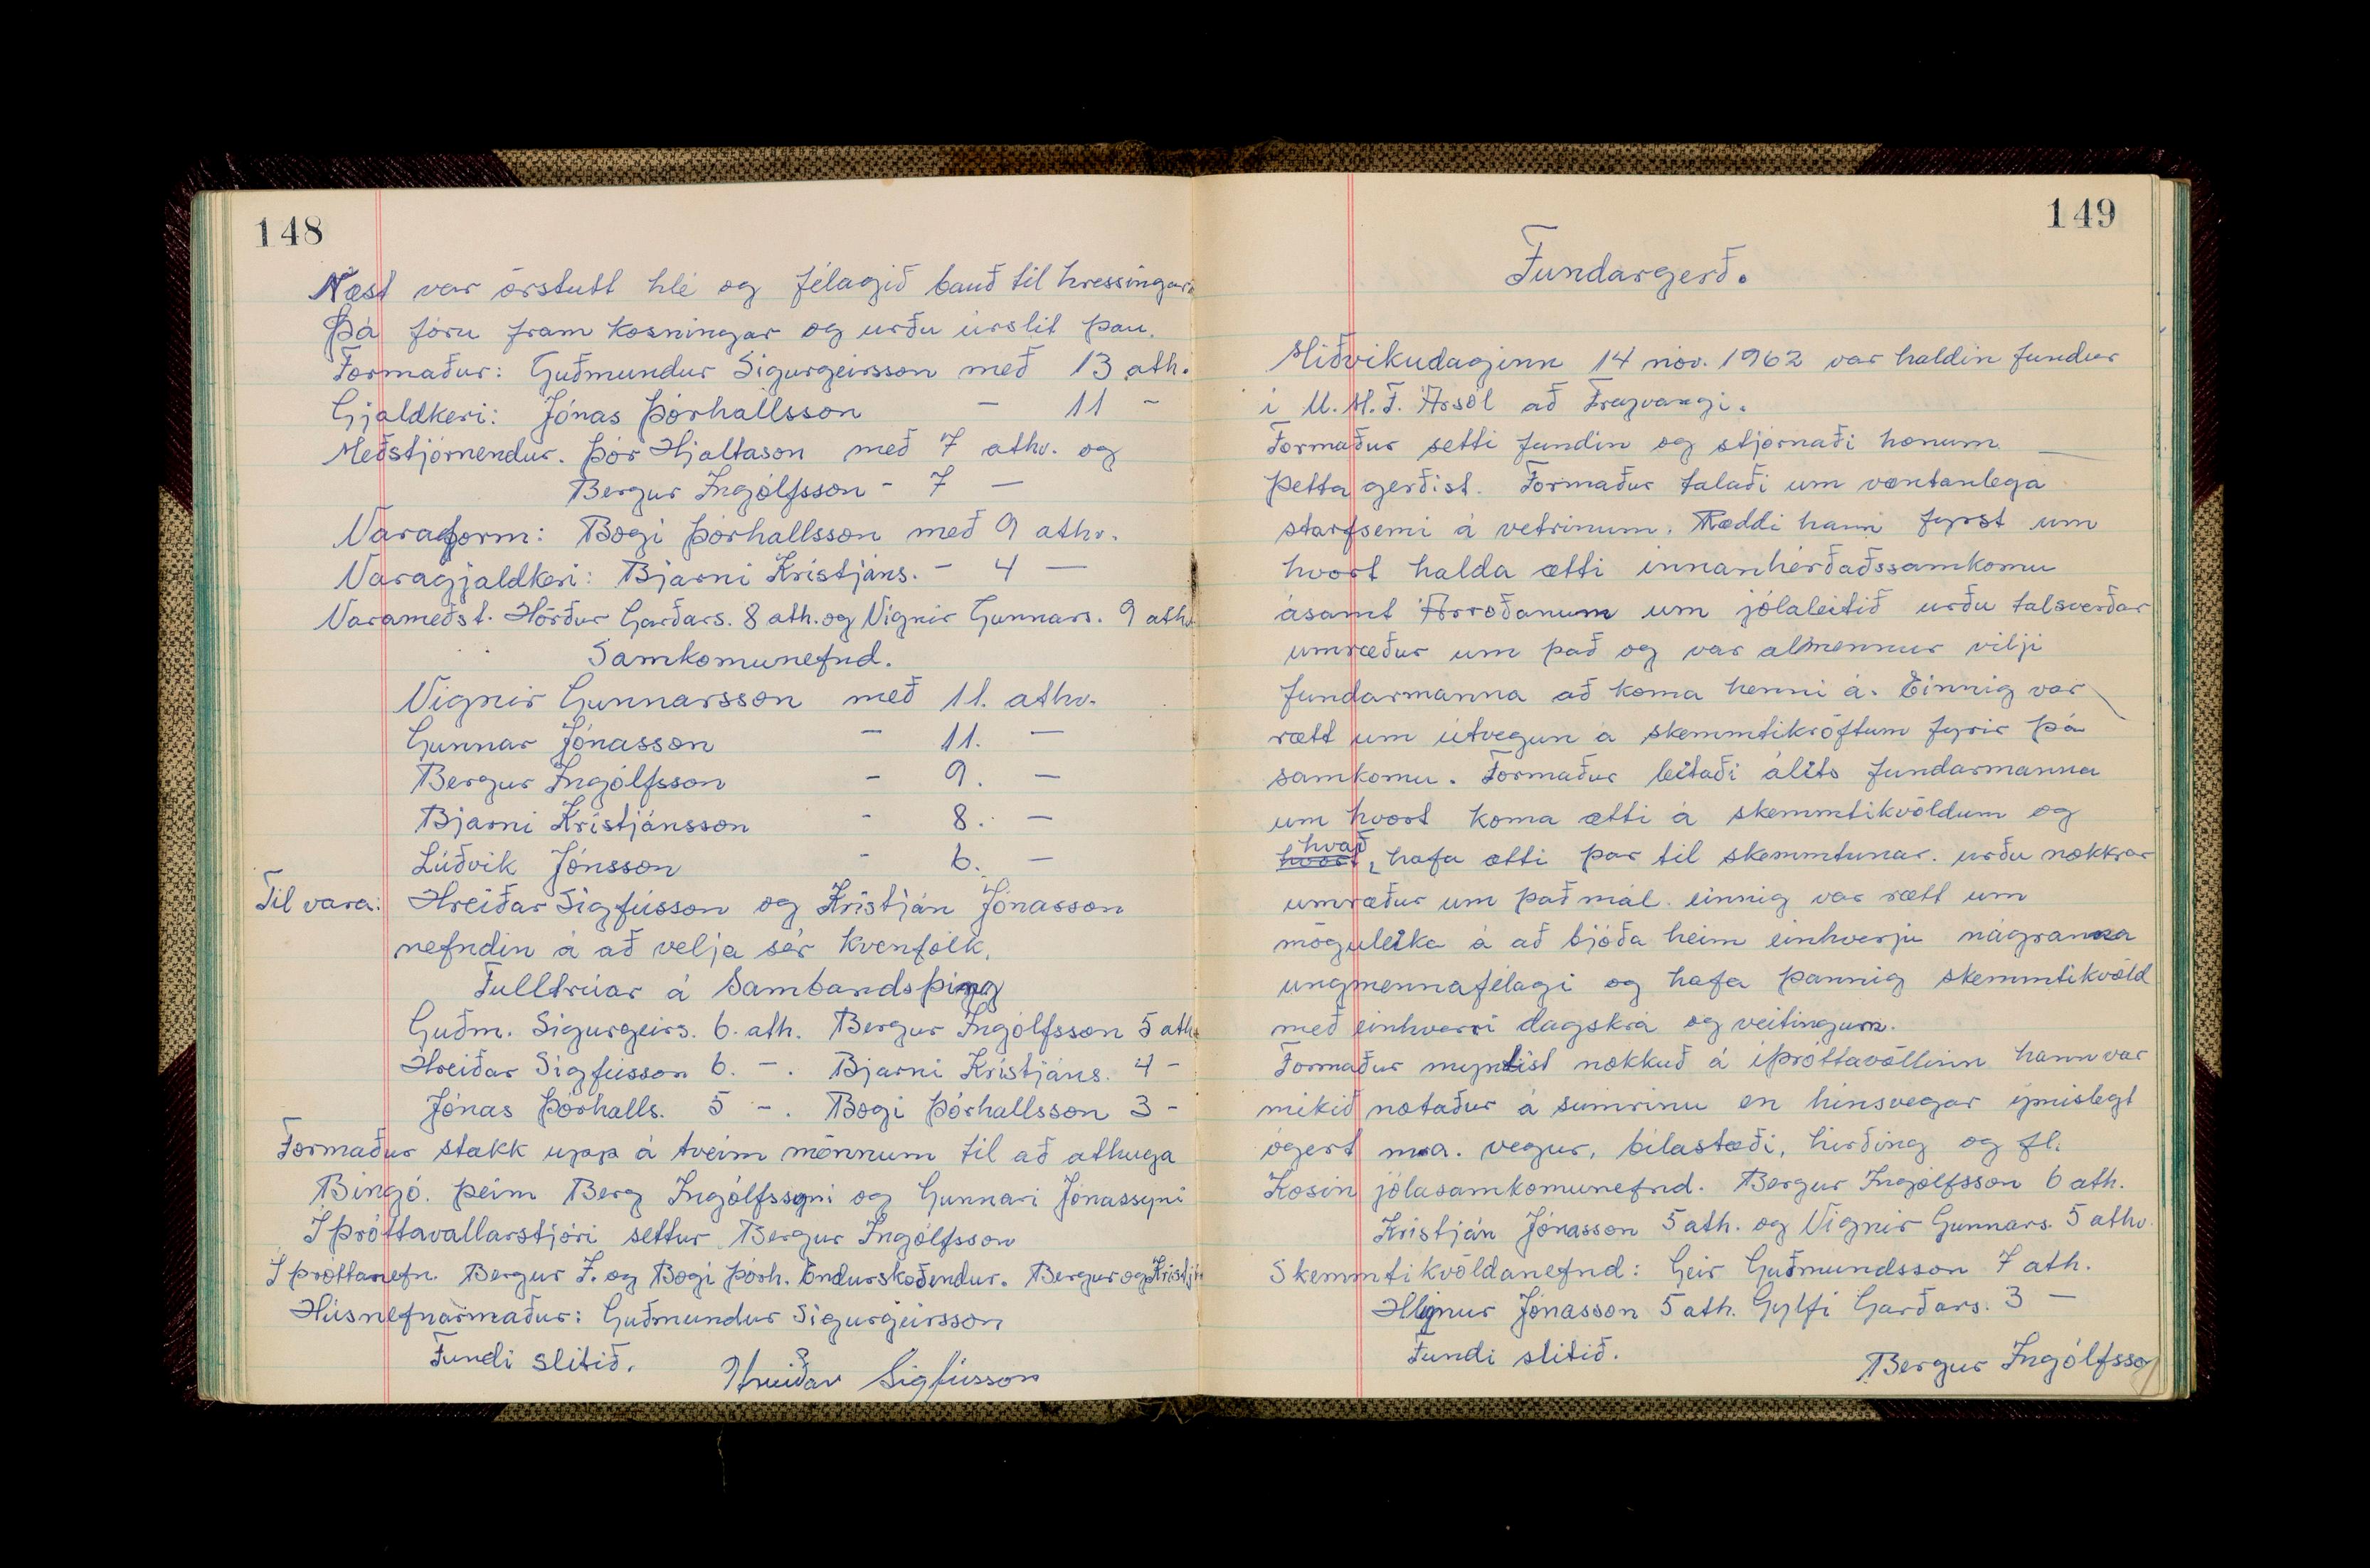 148
Næst var örstutt hlé og félagið bauð til hressingar
Þá fóru fram kosningar og urðu úrslit þau.
Formaður: Guðmundur Sigurgeirsson með 13 ath.
Gjaldkeri: Jónas Þórhallsson — 11 -
Meðstjórnendur. Þór Hjaltason með 7 athv. og
Bergur Ingólfsson - 7 —
Varaform: Bogi Þórhallsson með 9 athv.
Varagjaldkeri: Bjarni Kristjáns. - 4 —
Varameðst. Hörður Garðars. 8 ath. og Vignir Gunnars. 9 athv.
Samkomunefnd.
Vignir Gunnarsson með 11. athv.
Gunnar Jónasson — 11. —
Bergur Ingólfsson - 9. —
Bjarni Kristjánsson - 8. —
Lúðvik Jónsson - 6. —
Til vara: Hreiðar Sigfússon og Kristján Jónasson
nefndin á að velja sér kvenfólk.
Fulltrúar á Sambandsþing
Guðm. Sigurgeirs. 6. ath. Bergur Ingólfsson 5 ath
Hreiðar Sigfússon 6. -. Bjarni Kristjáns. 4 -
Jónas Þórhalls. 5 -. Bogi Þórhallsson 3 -
Formaður stakk upp á tveim mönnum til að athuga
Bingó. þeim Berg Ingólfssyni og Gunnari Jónassyni
Íþróttavallarstjóri settur Bergur Ingólfsson
Íþróttanefn. Bergur I. og Bogi Þórh. Endurskoðendur. Bergur og Kristján
Húsnefnarmaður: Guðmundur Sigurgeirsson
Fundi slitið. Hreiðar Sigfússon
149
Fundargerð.
Miðvikudaginn 14 nóv. 1962 var haldin fundur
í U.M.F. Ársól að Freyvangi.
Formaður setti fundin og stjórnaði honum
Þetta gerðist. Formaður talaði um væntanlega
starfsemi á vetrinum. Ræddi hann fyrst um
hvort halda ætti innanhérðaðssamkomu
ásamt Árroðanum um jólaleitið urðu talsverðar
umræður um það og var almennur vilji
fundarmanna að koma henni á. Einnig var
rætt um útvegun á skemmtikröftum fyrir þá
samkomu. Formaður leitaði álits fundarmanna
um hvort koma ætti á skemmtikvöldum og
hvort hvað hafa ætti þar til skemmtunar. urðu nokkrar
umræður um það mál. einnig var rætt um
möguleika á að bjóða heim einhverju nágranna
ungmennafélagi og hafa þannig skemmtikvöld
með einhverri dagskrá og veitingum.
Formaður myntist nokkuð á íþróttavöllinn hann var
mikið notaður á sumrinu en hinsvegar ýmislegt
ógert m.a. vegur, bílastæði, hirðing og fl.
Kosin jólasamkomunefnd. Bergur Ingólfsson 6 ath.
Kristján Jónasson 5 ath. og Vignir Gunnars. 5 athv.
Skemmtikvöldanefnd: Geir Guðmundsson 7 ath.
Hlynur Jónasson 5 ath. Gylfi Garðars. 3 —
Fundi slitið.
Bergur Ingólfsson